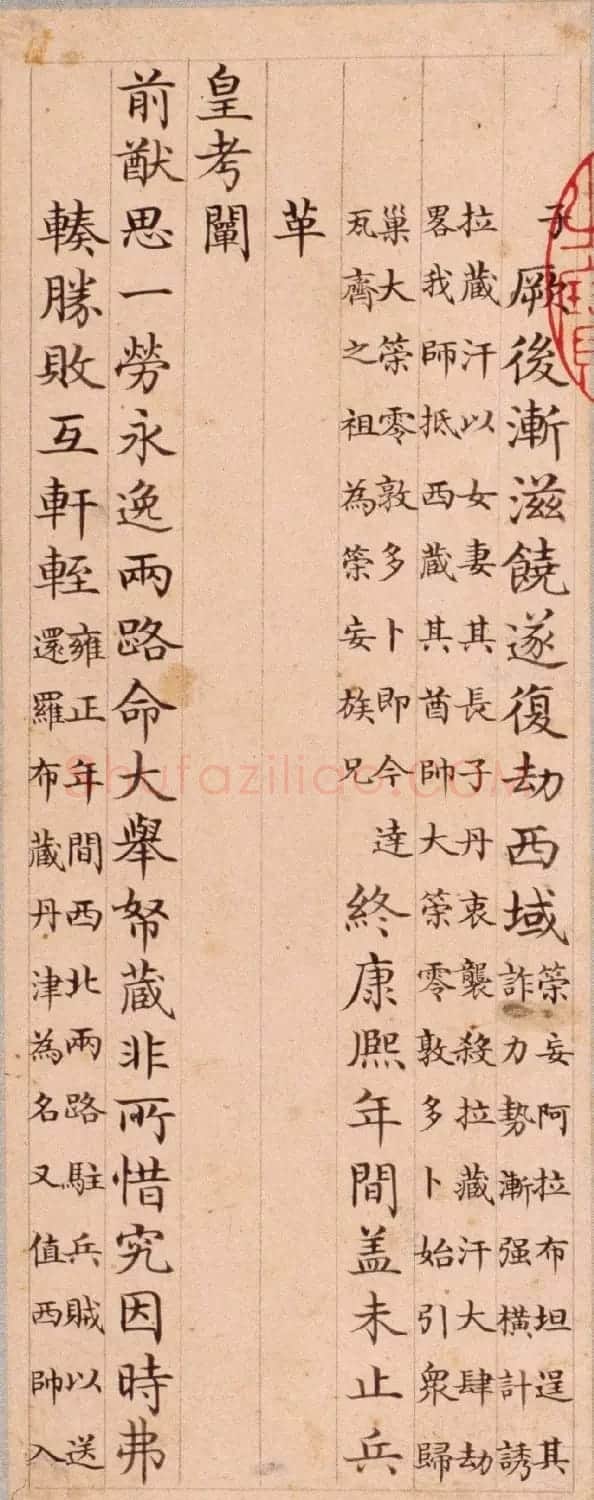 子
厥後漸滋饒遂復劫西域
策妄阿拉布坦逞其
詐力勢漸强橫計誘
拉藏汗以女妻其長子丹衷襲殺拉藏汗大肆劫
畧我師抵西藏其酋帥大策零敦多卜始引衆歸
巢大策零敦多卜即今達
瓦齊之祖為策妄族兄
終康熙年間盖未止兵
革
皇考闡
前猷思一勞永逸兩路命大舉帑藏非所惜究因時弗
輳勝敗互軒輊
雍正年間西北兩路駐兵賊以送
還羅布藏丹津為名又值西帥入
Shufaziliao.COM